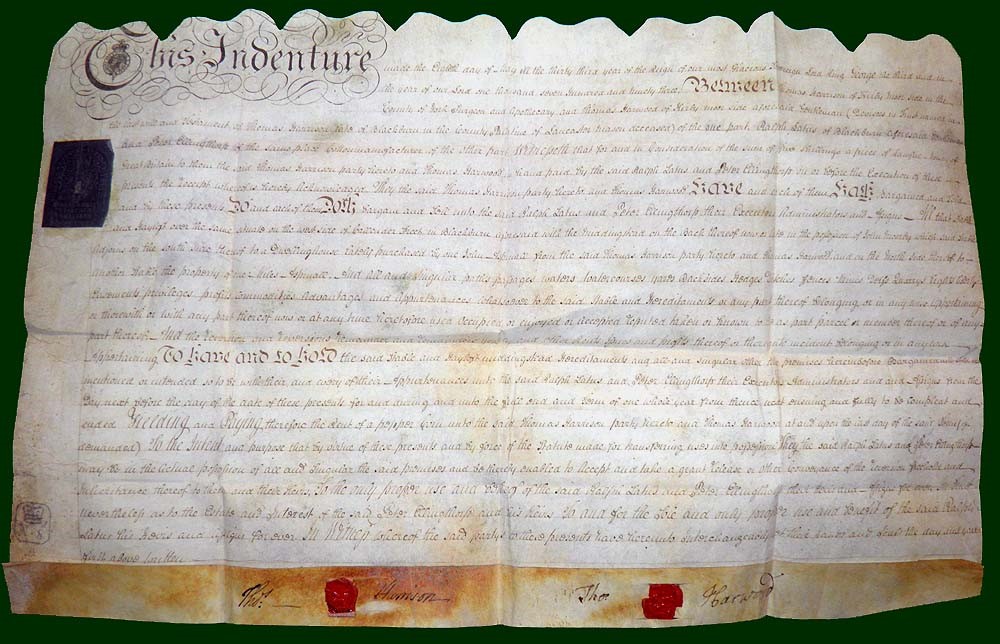 This Indenture made the Eighth day of May in the thirty third year of the Reign of our most Gracious Sovereign Lord King George the third and in
the year of our Lord one thousand seven hundred and ninety three Between Thomas Harrison of Kirby moor side in the
County of York Surgeon and Apothecary and Thomas Harwood of Kirby moor side aforesaid Gentleman (Devisees in Trust named in
the last will and testament of Thomas Harrison late of Blackburn in the County Palatine of Lancaster deceased) of the one part Ralph Latus of Blackburn aforesaid
and Peter Ellingthorp of the same place Cottonmanufacturer of the other part Witnesseth that for and in Consideration of the Sum of five Shillings a piece of lawful money of
Great Britain to them the said Thomas Harrison party hereto and Thomas Harwood in hand paid by the said Ralph Latus and Peter Ellingthorp on or before the Execution of these
presents the Receipt whereof is hereby Acknowledged They the said Thomas Harrison party hereto and Thomas Harwood Have and each of them Hath Bargained and Sold
and by these presents Do and each of them Doth Bargain and Sell unto the said Ralph Latus and Peter Ellingthorp their Executors Administrators and Assigns All that Stable
and Hayloft over the same situate on the west side of Street in Blackburn aforesaid with the Middingstead on the Back thereof now or late in the possession of John which said Stable
Adjoins on the South Side thereof to a Dwellinghouse lately purchased by one John Aspinall from the said Thomas Harrison party hereto and Thomas Harwood and on the North Side thereof to
another Stable the property of one Miles Aspinall And all and singular paths passages waters watercourses yards Backsides Hedges Ditches Fences
Easements privileges profits commodities Advantages and Appurtenances whatsoever to the said Stable and Hereditaments or any part thereof Belonging or in any wise appertaining
or therewith or with any part thereof now or at any time heretofore used occupied or enjoyed or accepted reputed taken or known to be as part parcel or member thereof or of any
part thereof And the Reversion and Reversions Remainder and Remainders yearly and other Rents Issues and profits thereof or thereunto incident Belonging or in anywise
Appertaining To Have and to Hold the said Stable and Hayloft Middingstead Hereditaments and all and singular other the premises hereinbefore Bargained and Sold
mentioned or intended so to be with their and every of their Appurtenances unto the said Ralph Latus and Peter Ellingthorp their Executors Administrators and Assigns from the
Day next before the day of the date of these presents for and during and unto the full end and term of one whole year from thence next ensuing and fully to be compleat and
ended Yielding and Paying therefore the Rent of a pepper Corn unto the said Thomas Harrison party hereto and Thomas Harwood at and upon the last day of the said Term if
demanded) To the Intent and purpose that by virtue of these presents and by force of the Statute made for transferring uses into possession they the said Ralph Latus and Peter Ellingthorp
may be in the actual possession of all and singular the said premises and be thereby enabled to Accept and take a grant Release or other Conveyance of the Reversion freehold and
Inheritance thereof to them and their heirs To the only proper use and behoof of the said Ralph Latus and Peter Ellingthorp their heirs and Assigns for ever
nevertheless as to the Estate and Interest of the said Peter Ellingthorp and his heirs to and for the Sole and only proper use and benefit of the said Ralph
Latus his Heirs and Assigns for ever In Witness whereof the said party to these presents have hereunto Interchangeably set their hands and Seals the day and year
first above written
Thos. Harrison Thos Harwood